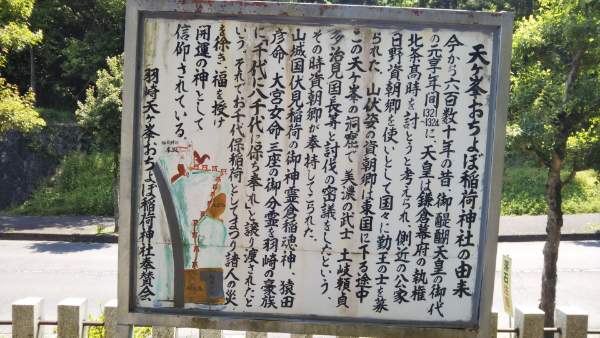 天ヶ峯おちょぼ稲荷神社の由来
今から六百数十年の昔、御醍醐天皇の御代
の元亨年間1321~1324に天皇は鎌倉幕府の執権
北条高時を討とうと考えられ、側近の公家
日野資朝卿を使いとして国々に勤王の士を募
られた。山伏姿の資朝卿は東国に下る途中
この天ヶ峯の洞窟で、美濃の武士 土岐頼貞
多治見国長等と討伐の密議をしたという。
その時資朝卿が奉持してこられた。
山城国伏見稲荷の御神霊倉稲魂神、猿田
彦命、大宮女命、三座の御分霊を羽崎の豪族
に千代に八千代に保ち奉れと譲り渡されたと
いう。それでお千代保稲荷としてまつり諸人の災
を除き福を授け
開運の神として
信仰されている。
羽崎天ヶ峯おちょぼ稲荷神社奉賛会